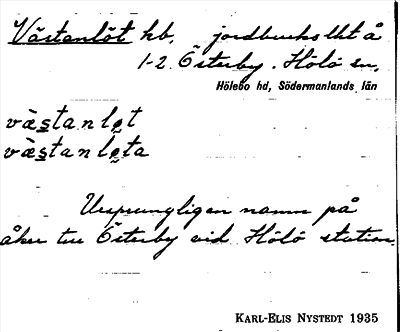 Västanlöt hb, jordbrukslht å
1-2 Österby. Hölö sn,
Hölebo hd, Södermanlands län
väs̲tanlø̨t
väs̲tanlø̨ta
Ursprungligen namn på
åker tu Österby vid Hölö station.
KARL-ELIS NYSTEDT 1935